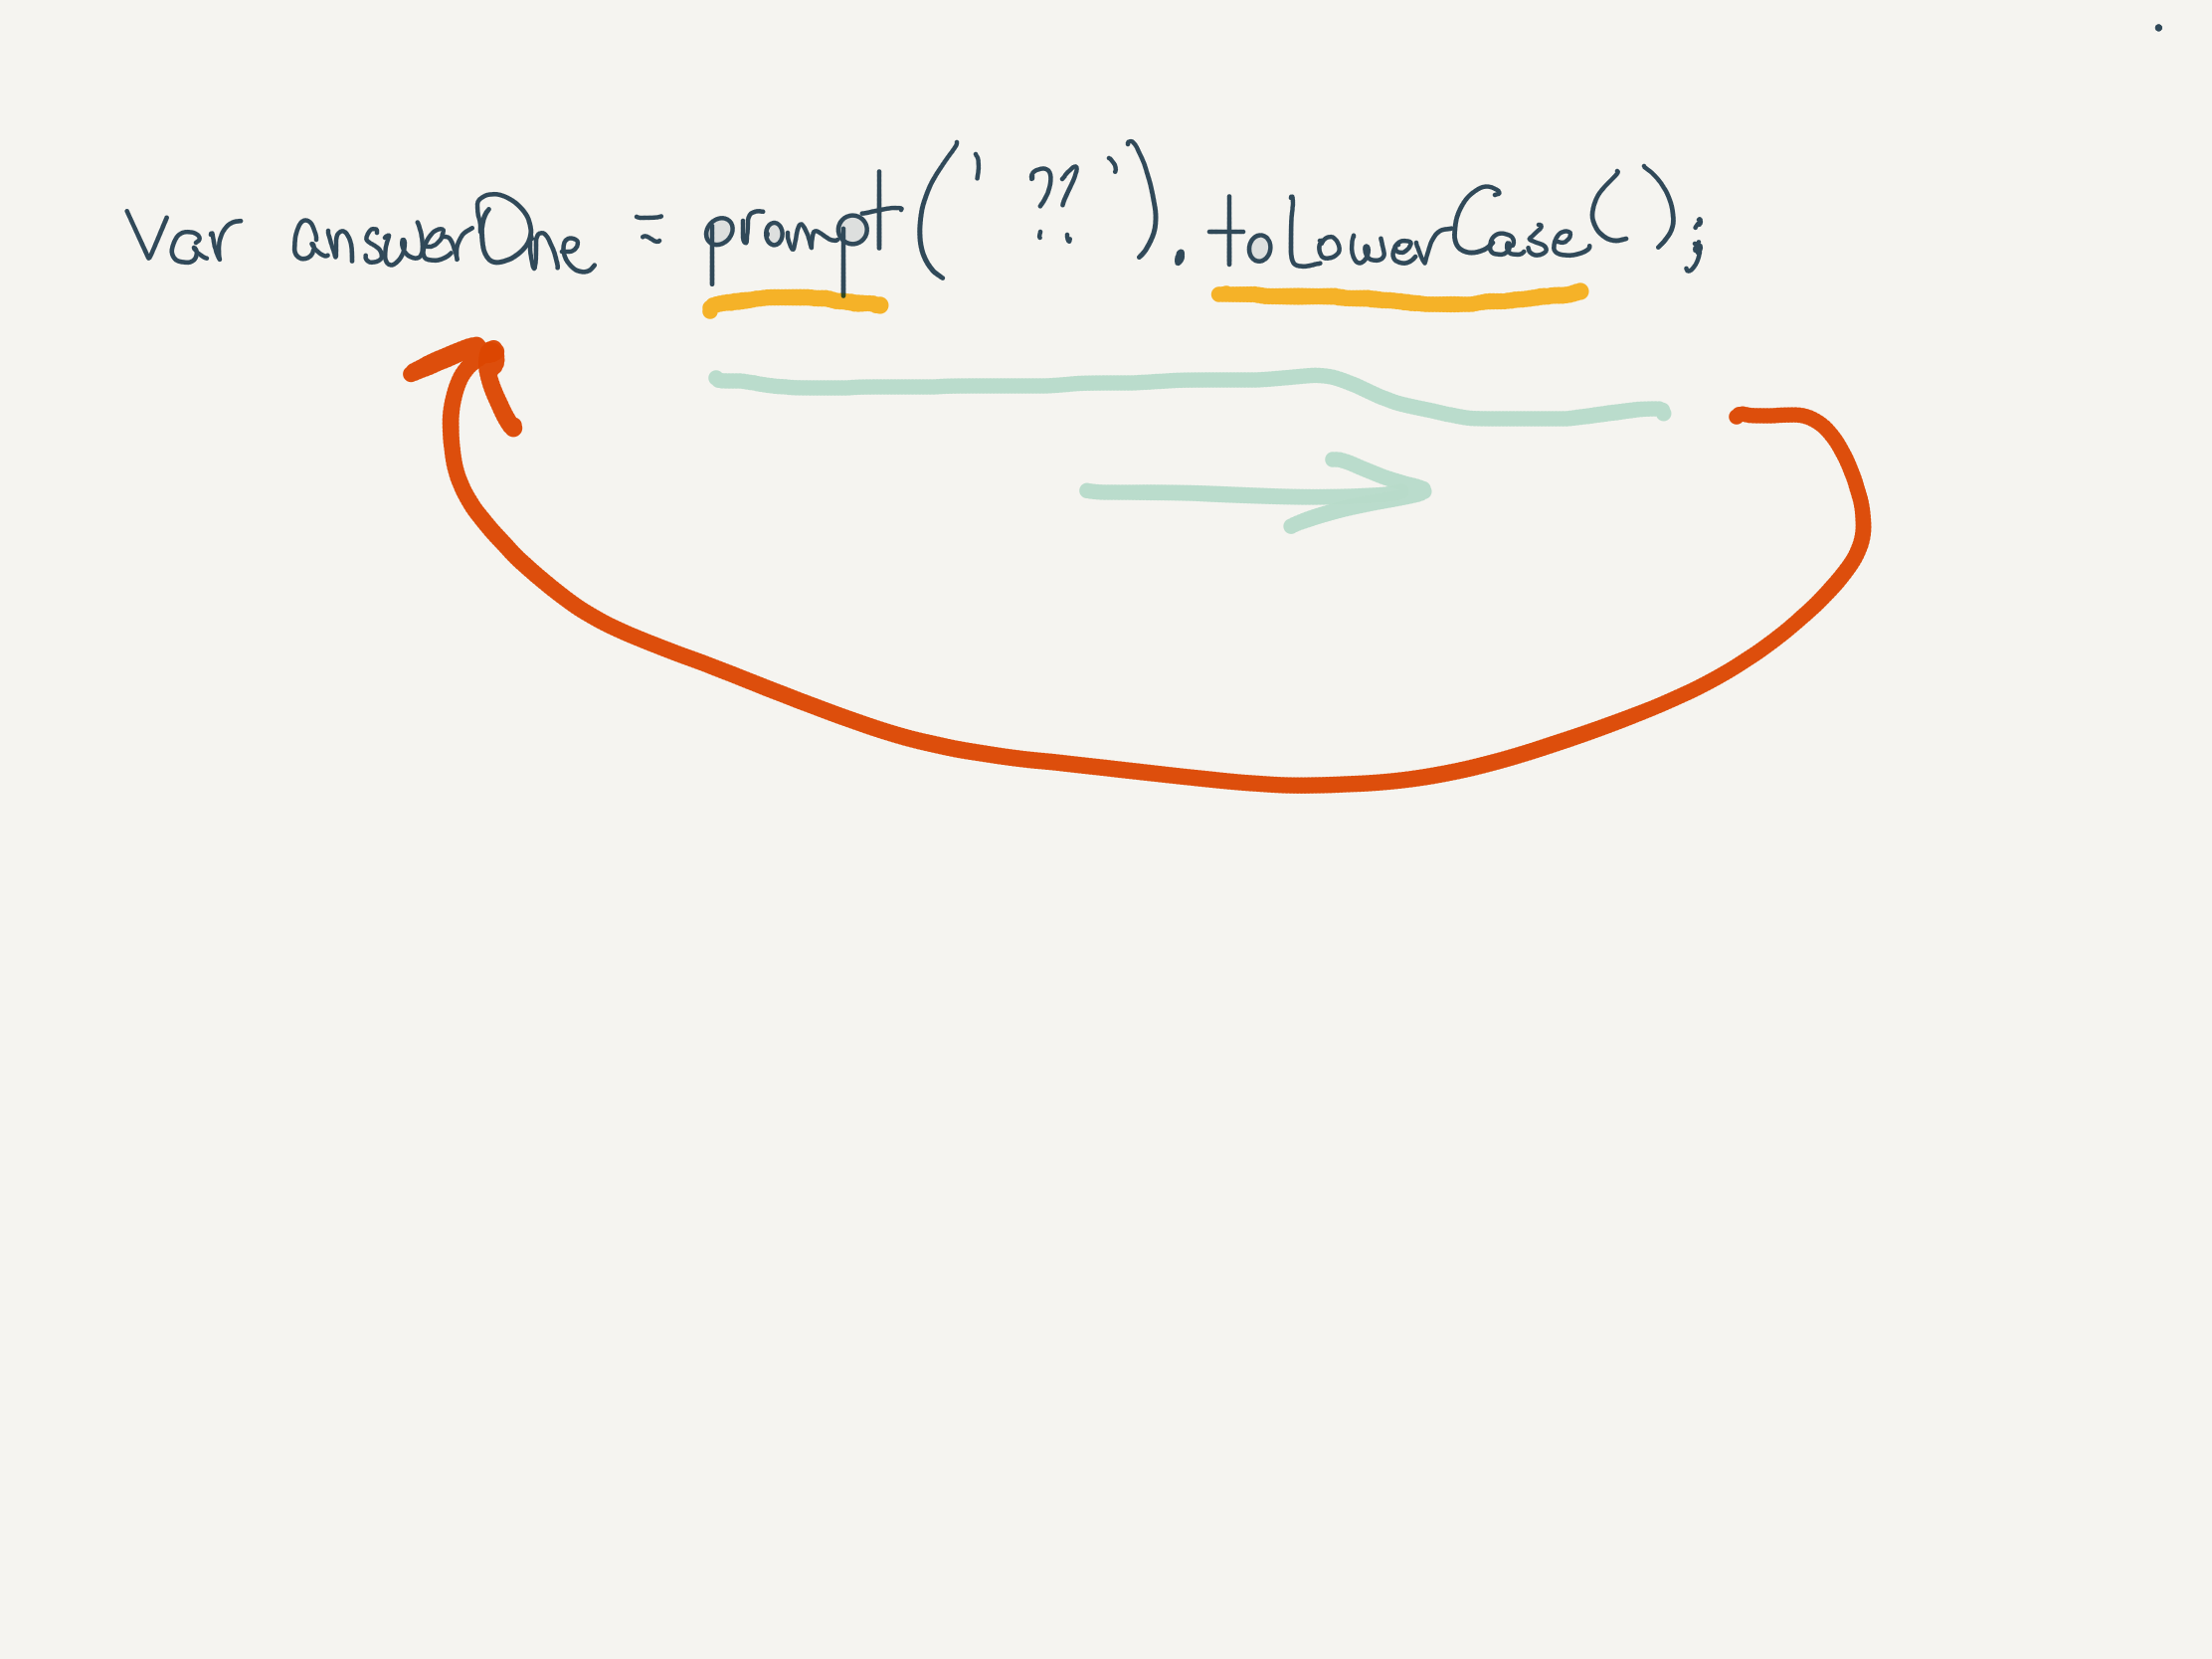 var answerOne = prompt(' ?? ').toLowerCase();